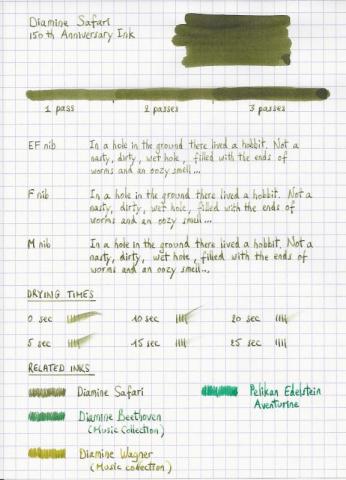 Diamine Safari
150th Anniversary Ink
1 pass 2 passes 3 passes
EF nib In a hole in the ground there lived a hobbit. Not a
nasty, dirty, wet hole, filled with the ends of
worms and an oozy smell...
F nib In a hole in the ground there lived a hobbit. Not a
nasty, dirty, wet hole, filled with the ends of
worms and an oozy smell...
M nib In a hole in the ground there lived a hobbit. Not a
nasty, dirty, wet hole, filled with the ends of
worms and an oozy smell...
DRYING TIMES
0 sec 10 sec 20 sec
5 sec 15 sec 25 sec
RELATED INKS
Diamine Safari Pelikan Edelstein
Aventurine
Diamine Beethoven
(Music Collection)
Diamine Wagner
(Music collection)